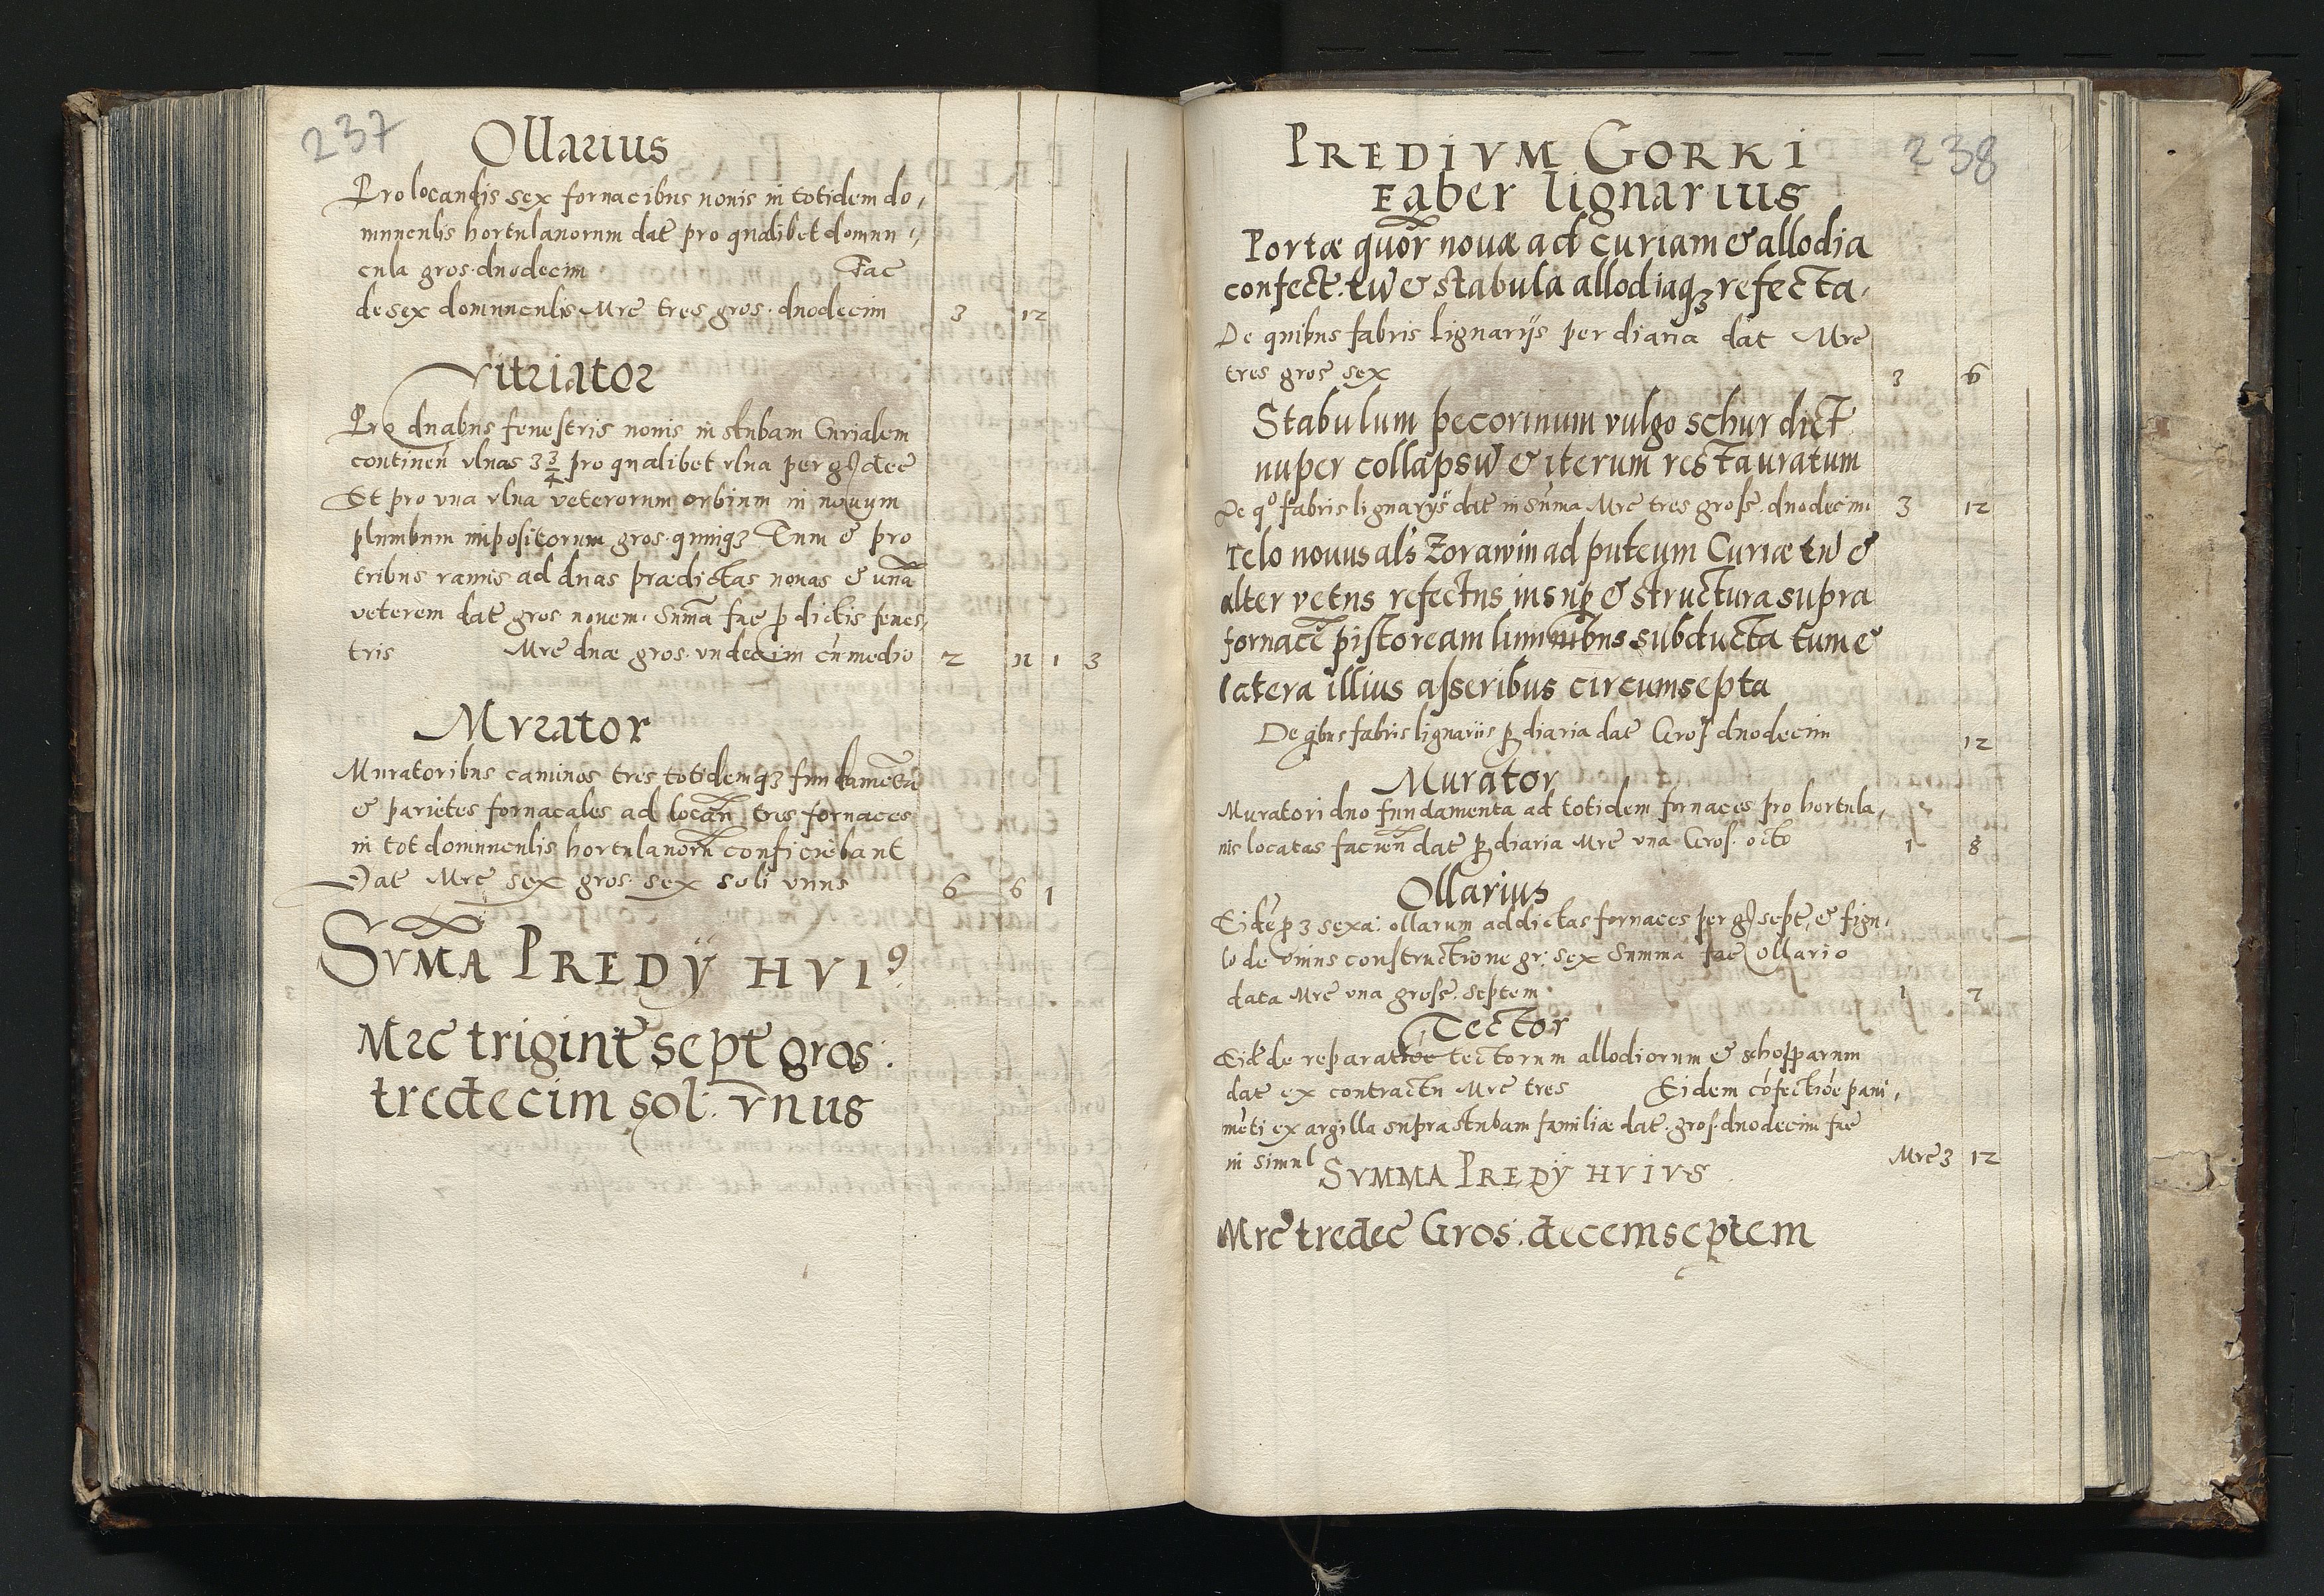 237
Ollarius
Pro locandis sex fornacibus nouis in totidem do,
munculis hortulanorum dat pro qualibet domun,
cula gros. duodecim Fac
de sex domunculis Mrc tres gros. duodecim 3 12
Vitriator
Pro duabus fenestris nouis in stubam Curialem
continen vlnas 3 3/4 pro qualibet vlna per g dec
Et pro vna vlna veterorum orbium in nouum
plumbum impositorum gros. quinqꝫ Tum & pro
tribus ramis ad duas prædictas nouas & vnã
veterem dat gros nouem. Sum̃a fac p dictis fenes,
tris Mrc duæ gros. vndecim cũ medio 2 11 1 3
Mvrator
Muratoribus caminos tres totidemqꝫ fundamẽta
& parietes fornacales ad locan tres fornaces
in tot domunculis hortulanorũ conficiebant
Dat Mrc sex gros. sex soli vnus 6 6 1
Svma Predÿ hviꝰ
Mrc trigint sept gros:
tredecim sol. vnus
238
Predivm Gorki
Faber lignarius
Portæ quor̃ nouæ ad curiam & allodia
confect. tũ & stabula allodiaqꝫ refecta.
De quibus fabris lignarijs per diaria dat Mrc
tres gros sex 3 6
Stabulum pecorinum vulgo schur dict
nuper collapsũ & iterum restauratum
De qº fabris lignarÿs dat in sũma Mrc tres gros. duodecim 3 12
Telo nouus als Zorawin ad puteum Curiæ tũ &
alter vetus refectus insup & structura supra
fornacẽ pistoream luminibus subducta tum &
latera illius asseribus circumsepta
De qibus fabris lignariis p diaria dat Gros duodecim 12
Murator
Muratori duo fundamenta ad totidem fornaces pro hortula,
nis locatas facien dat p diaria Mrc vna Gros. octo 1 8
Ollarius
Eidẽ p 3 sexa: ollarum ad dictas fornaces per g sept, & figu,
lo de vnius constructione gr. sex Summa fac Ollario
data Mrc vna gros. septem 1 7
Tector
Eidẽ de reparatiõe tectorum allodiorum & schopparum
dat ex contractu Mrc tres Eidem cõfectiõe paui,
mẽti ex argilla supra stubam familiæ dat. gros. duodecim fac
in simul Mrc 3 12
Svmma Predÿ hvivs
Mrc tredec Gros. decem septem